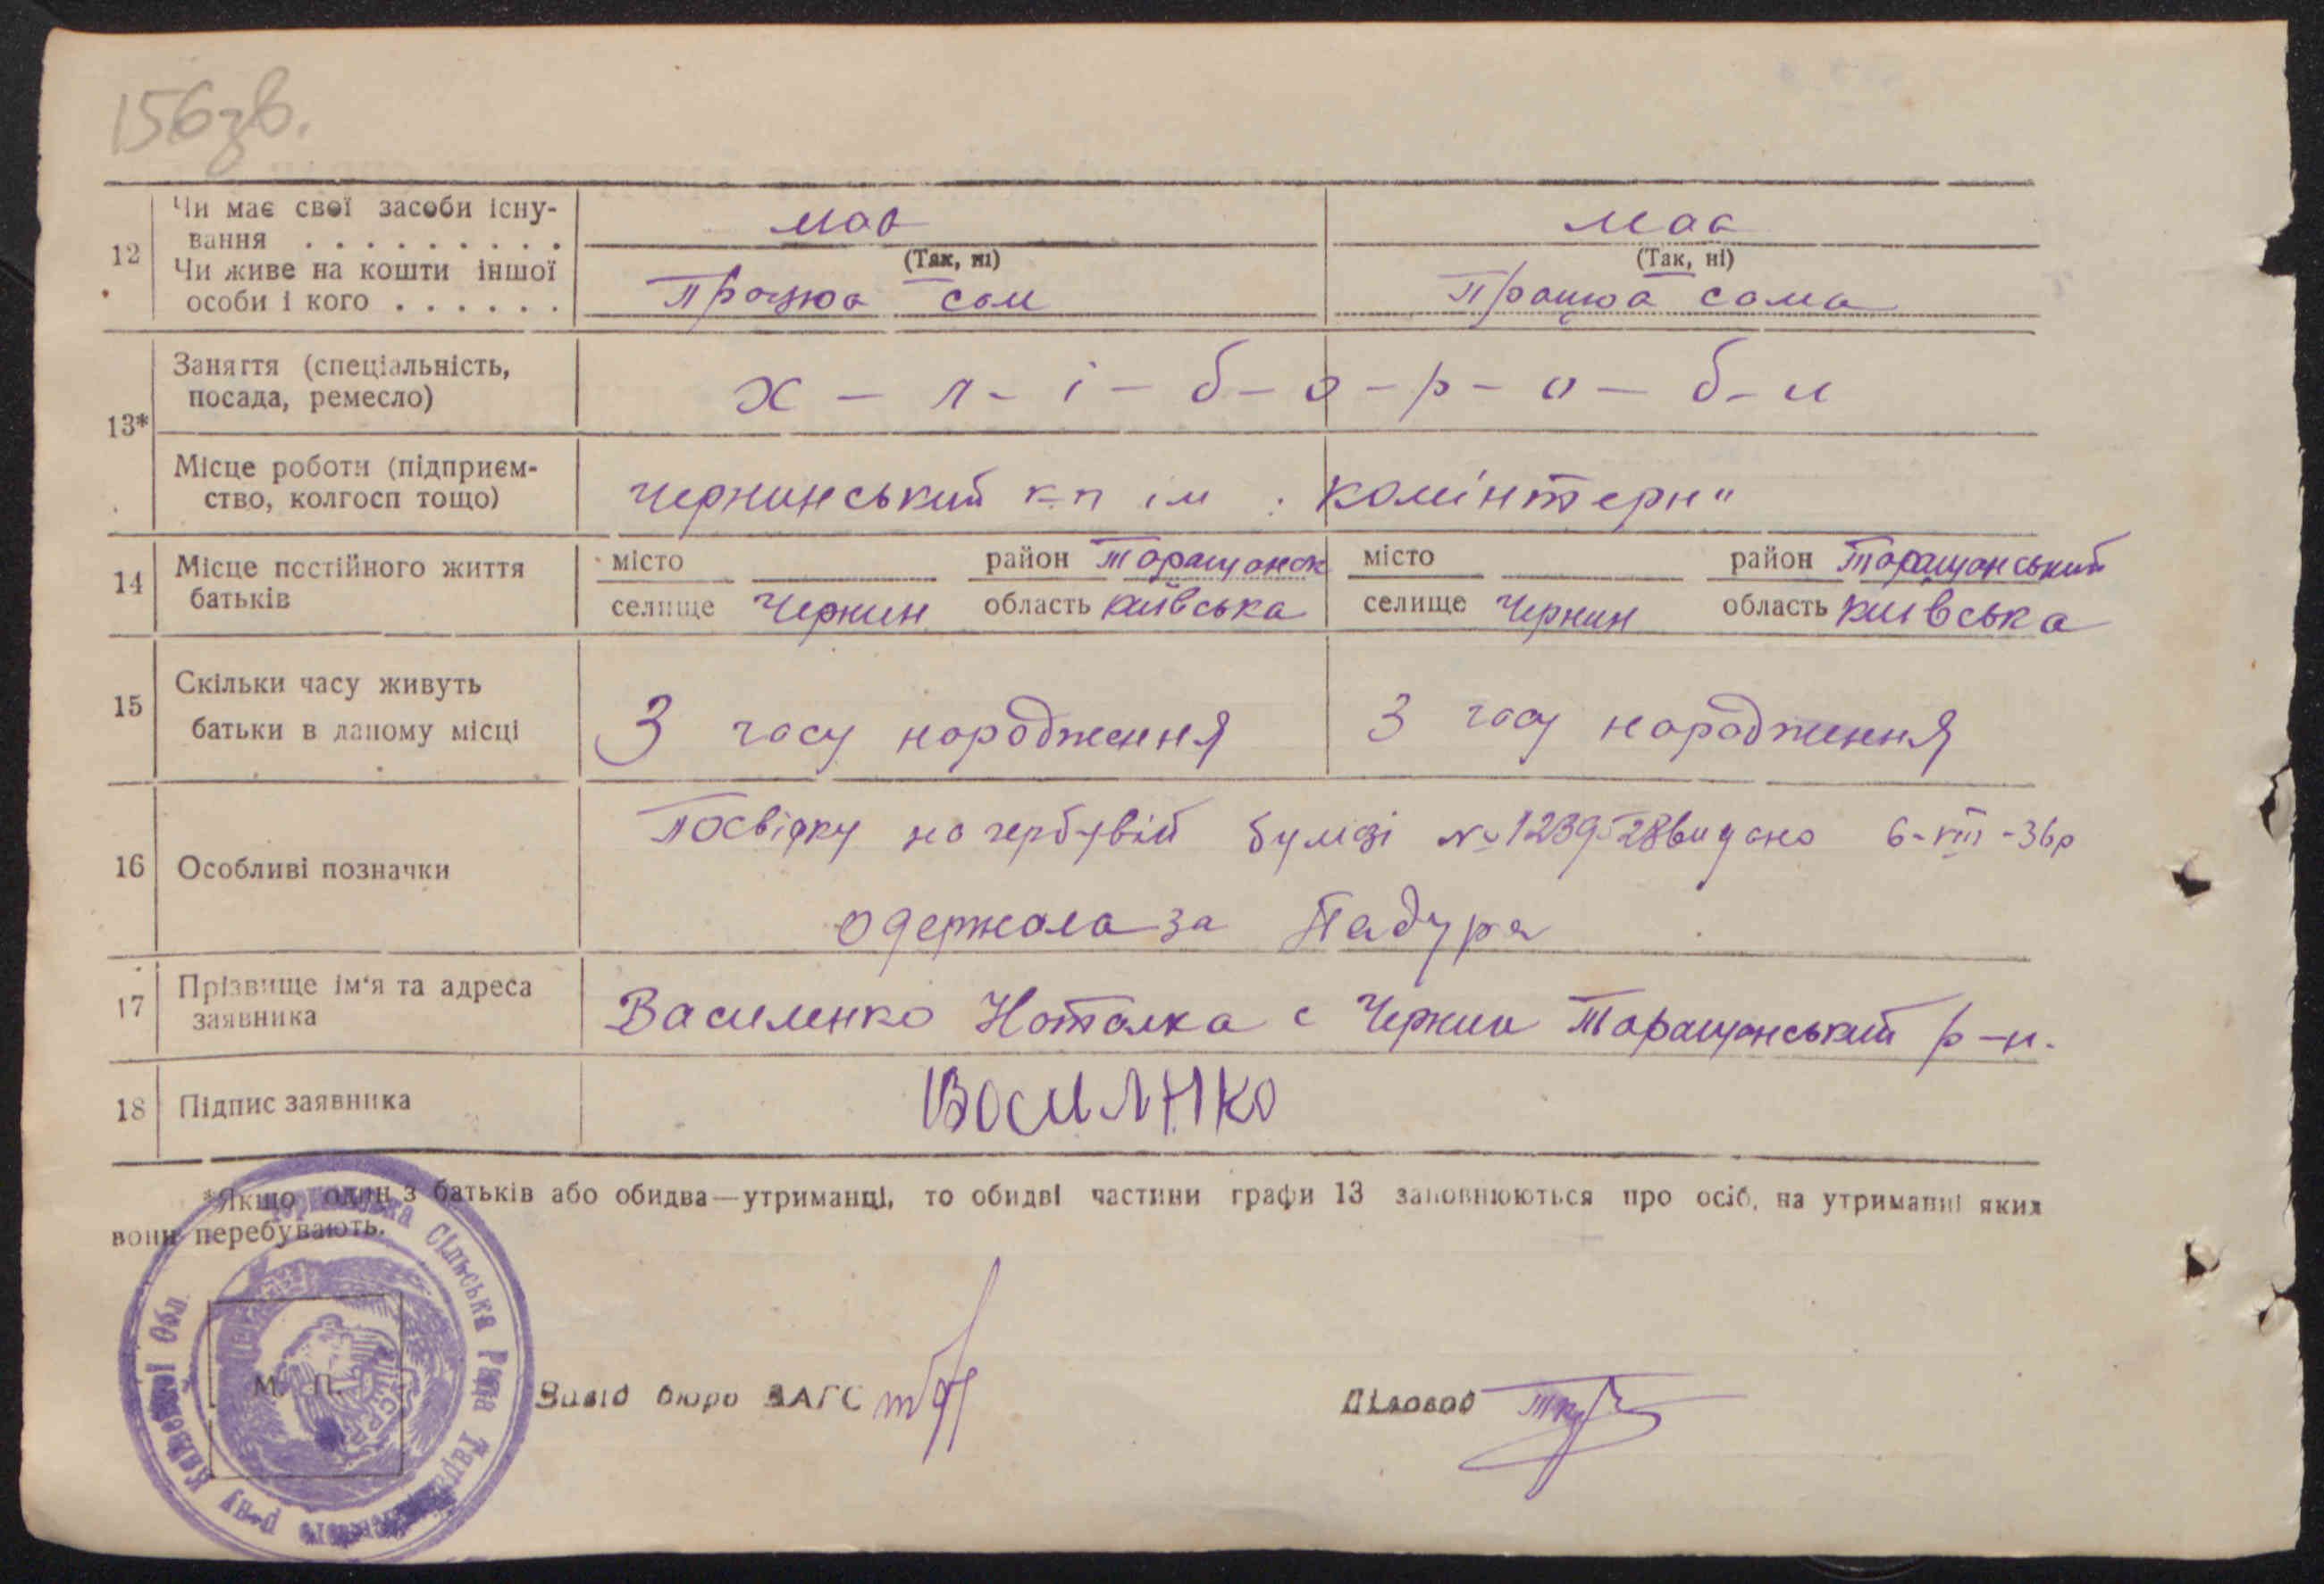 156зв.
12 Чи має свої засоби існу-
вання . . . . . . . . .
має
має
(Так, ні)
(Так, ні)
Чи живе на кошти іншої
особи і кого . . . . . .
Працює сам
Працює сама
13*
Заняття (спеціальність,
посада, ремесло)
х - л - і - б - о - р - о - б - и
Місце роботи (підприєм-
ство, колгосп тощо)
Чернинський к-п ім. Комінтерн"
14 Місце постійного життя
батьків
місто район Таращанск
селище Чернин область Київська
місто район Таращанський
селище Чернин область Київська
15 Скільки часу живуть
батьки в даному місці
З часу народження
З часу народження
16 Особливі позначки
Посвідку на гербувій бумазі № 123928 видано 6-VIII-36р
одержала за Падура
17 Прізвище ім'я та адреса
заявника
Василенко Наталка с Чернин Таращанський р-н.
18 Підпис заявника
Восилнко
*Якщо один з батьків або обидва—утриманці, то обидві частини графи 13 заповнюються про осіб, на утриманні яких
вони перебувають.
Сільська Рада Таращанського р-ну Київської Обл.
М. П.
УСРР
Завід бюро ЗАГС
Діловод